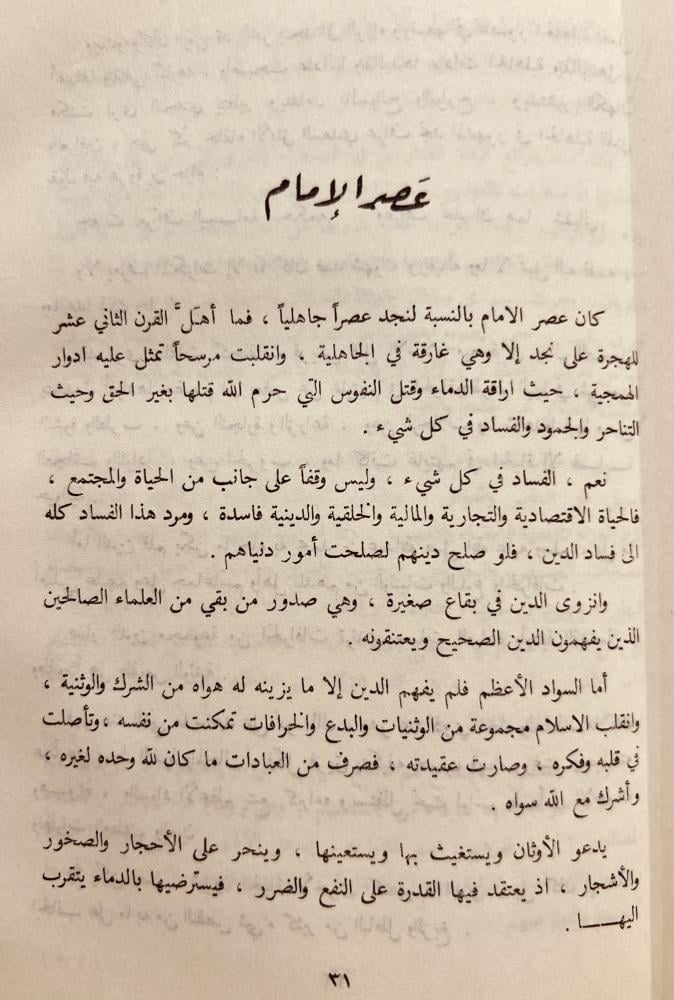 عَصر الإمام
كان عصر الامام بالنسبة لنجد عصراً جاهلياً ، فما أهلَّ القرن الثاني عشر
للهجرة على نجد إلا وهي غارقة في الجاهلية ، وانقلبت مرسحاً تمثل عليه ادوار
الهمجية ، حيث اراقة الدماء وقتل النفوس التي حرم الله قتلها بغير الحق وحيث
التناحر والجمود والفساد في كل شيء .
نعم ، الفساد في كل شيء ، وليس وقفاً على جانب من الحياة والمجتمع ،
فالحياة الاقتصادية والتجارية والمالية والخلقية والدينية فاسدة ، ومرد هذا الفساد كله
الى فساد الدين ، فلو صلح دينهم لصلحت أمور دنياهم .
وانزوى الدين في بقاع صغيرة ، وهي صدور من بقي من العلماء الصالحين
الذين يفهمون الدين الصحيح ويعتنقونه .
أما السواد الأعظم فلم يفهم الدين إلا ما يزينه له هواه من الشرك والوثنية ،
وانقلب الاسلام مجموعة من الوثنيات والبدع والخرافات تمكنت من نفسه ، وتأصلت
في قلبه وفكره ، وصارت عقيدته ، فصرف من العبادات ما كان لله وحده لغيره ،
وأشرك مع الله سواه .
يدعو الأوثان ويستغيث بها ويستعينها ، وينحر على الأحجار والصخور
والأشجار ، اذ يعتقد فيها القدرة على النفع والضرر ، فيسترضيها بالدماء يتقرب
اليهـــا .
٣١